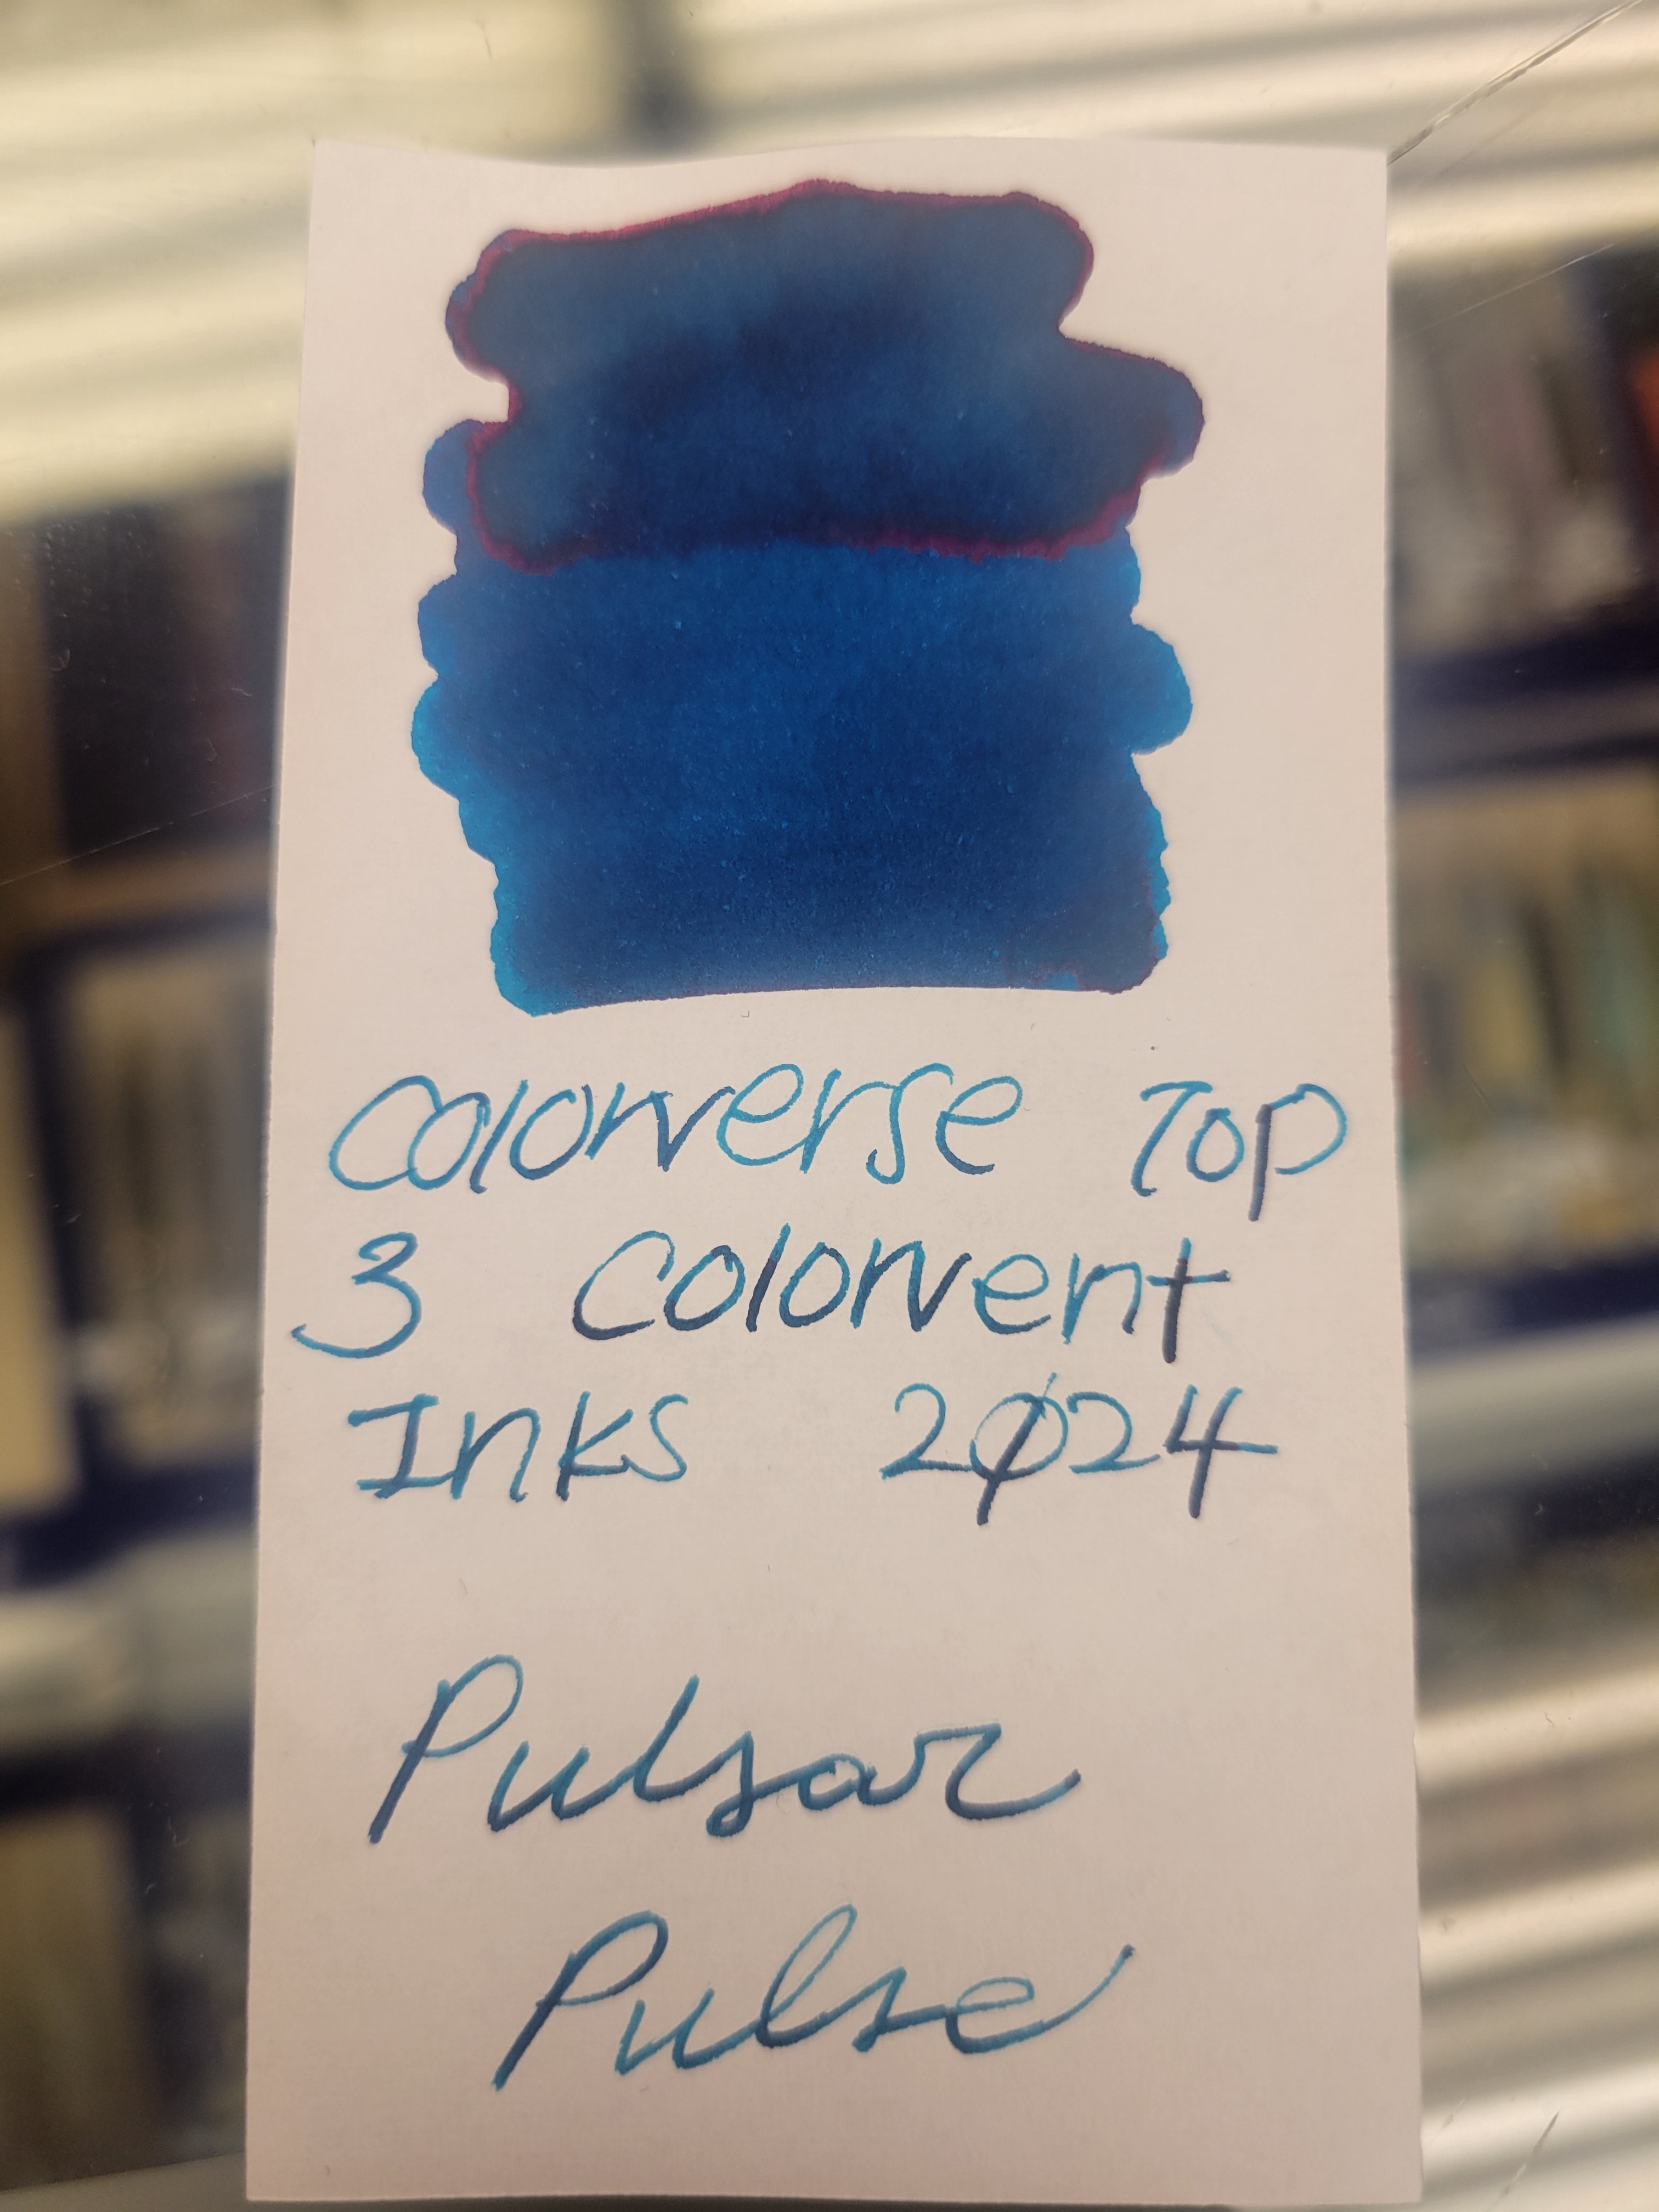 Colorverse Top
3 Colorvent
Inks 2024
Pulsar
Pulse